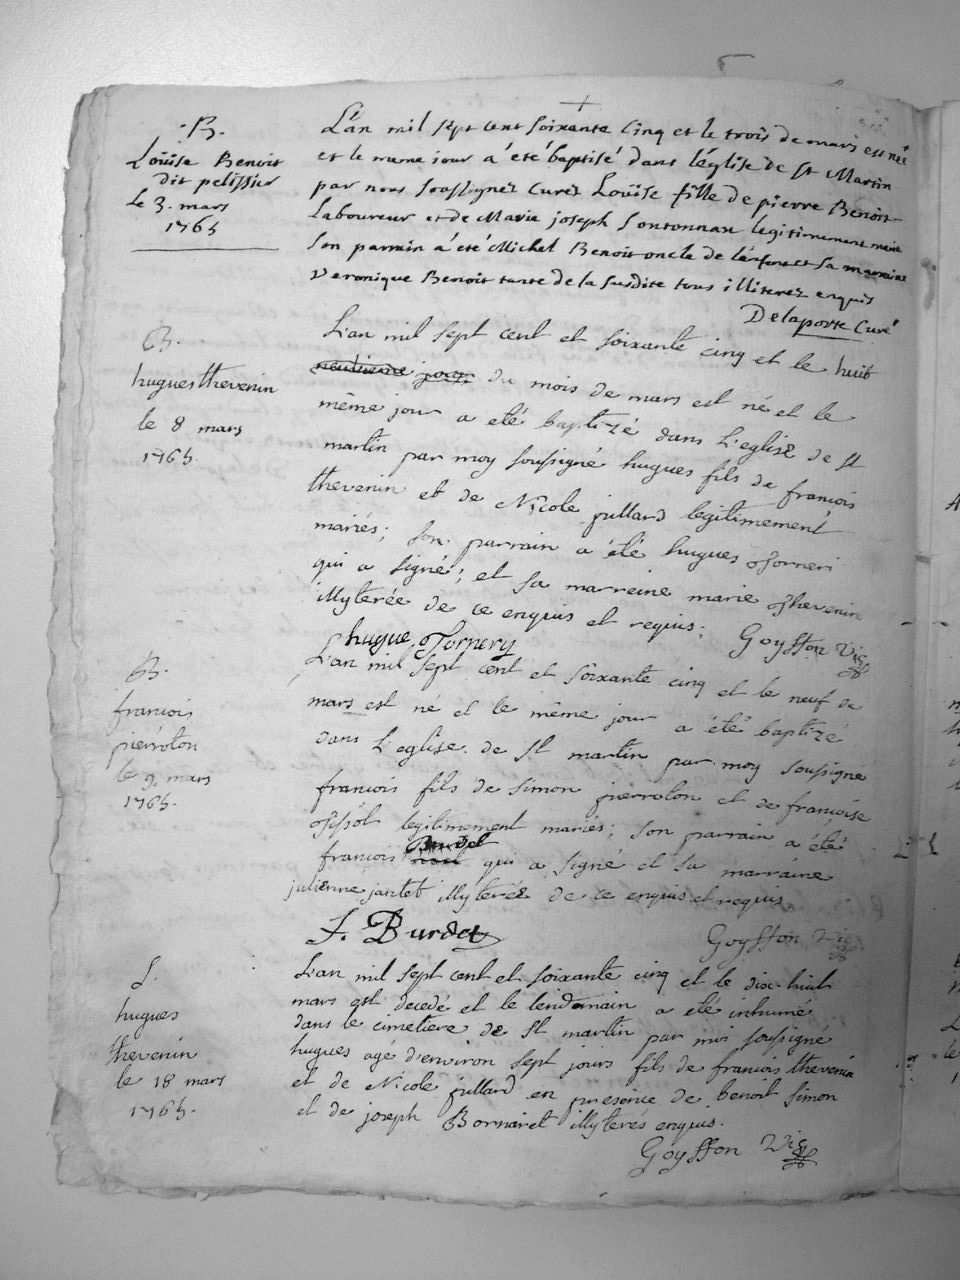 B.
Loüise Benoit
dit pelissier
le 3. mars
1765
L'an mil sept cent soixante cinq et le trois de mars est née
et le meme jour a été baptisé dans l'église de St Martin
par nous soussignez curez Loüise fille de pierre Benoit
Laboureur et de Marie joseph Sontonnax legitimement marié
son parrain a été Michel Benoit oncle de l'enfent et sa marraine
veronique Benoit tante de la susdite tous illiterez enquis
Delaporte Curé
B.
hugues thevenin
le 8 mars
1765.
L'an mil sept cent et soixante cinq et le huit
neuvieme jour du mois de mars est né et le
même jour a eté baptizé dans L'eglise de St
martin par moy soussigné hugues fils de francois
thevenin et de Nicole jullard legitimement
mariés; son parrain a été hugues torneri
qui a signé; et sa marreine marie thevenin
illyterée de ce enquis et requis;
hugue Tornery
Goyffon Vic
B.
francois
pierrolon
le 9 mars
1765.
L'an mil sept cent et soixante cinq et le neuf de
mars est né et le même jour a été baptizé
dans L'eglise de St martin par moy soussigné
francois fils de simon pierrolon et de francoise
legitimement mariés; son parrain a été
francois Burdet qui a signé et sa marraine
julienne jantet illyterée de ce enquis et requis
J. Burdet
Goyffon Vic
S.
hugues
thevenin
le 18 mars
1765.
L'an mil sept cent et soixante cinq et le dix huit
mars est decedé et le lendemain a eté inhumé
dans le cimetiere de St martin par moi soussigné
hugues agé d'environ sept jours fils de francois thevenin
et de Nicole jullard en presence de benoit simon
et de joseph Bornaret illyterés enquis.
Goyffon Vic